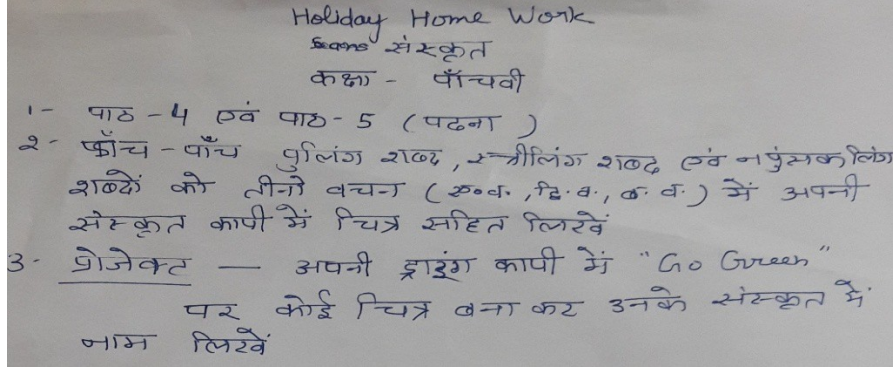 Holiday Home Work
संस्कृत
कक्षा - पाँचवी
1- पाठ - 4 एवं पाठ - 5 ( पढना )
2- पाँच - पाँच पुलिंग शब्द, स्त्रीलिंग शब्द एवं नपुंसकलिंग
शब्दों को तीनो वचन ( ए.व., द्वि.व., ब.व. ) में अपनी
संस्कृत कापी में चित्र सहित लिखें
3- प्रोजेक्ट — अपनी ड्राइंग कापी में "Go Green"
पर कोई चित्र बना कर उनके संस्कृत में
नाम लिखें